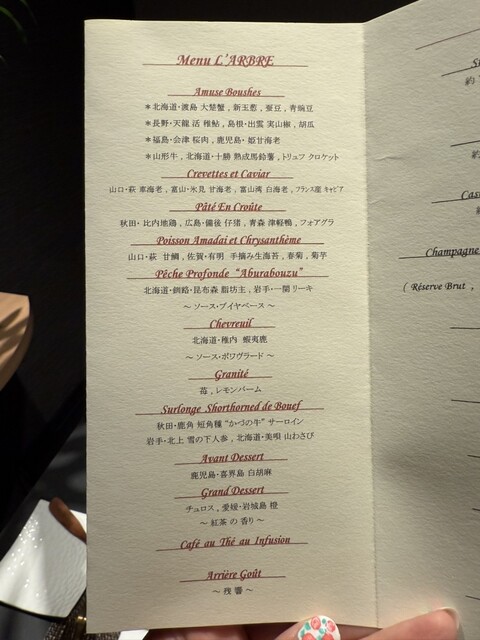 Menu L'ARBRE
Amuse Boushes
*北海道・渡島 大楚蟹 , 新玉葱 , 蚕豆 , 青豌豆
*長野・天龍 活 稚鮎 , 島根・出雲 実山椒 , 胡瓜
*福島・会津 桜肉 , 鹿児島・姫甘海老
*山形牛 , 北海道・十勝 熟成馬鈴薯 , トリュフ クロケット
Crevettes et Caviar
山口・萩 車海老 , 富山・氷見 甘海老 , 富山湾 白海老 , フランス産 キャビア
Pâté En Croûte
秋田・比内地鶏 , 広島・備後 仔猪 , 青森 津軽鴨 , フォアグラ
Poisson Amadai et Chrysanthème
山口・萩 甘鯛 , 佐賀・有明 手摘み生海苔 , 春菊 , 菊芋
Pêche Profonde "Aburabouzu"
北海道・釧路・昆布森 脂坊主 , 岩手・一関 リーキ
～ ソース・ブイヤベース ～
Chevreuil
北海道・稚内 蝦夷鹿
～ ソース・ポワヴラード ～
Granité
苺 , レモンバーム
Surlonge Shorthorned de Bouef
秋田・鹿角 短角種 "かづの牛" サーロイン
岩手・北上 雪の下人参 , 北海道・美唄 山わさび
Avant Dessert
鹿児島・喜界島 白胡麻
Grand Dessert
チュロス , 愛媛・岩城島 橙
～ 紅茶 の 香り ～
Café au Thé au Infusion
Arrière Goût
～ 残 響 ～
Champagne
( Réserve Brut ,